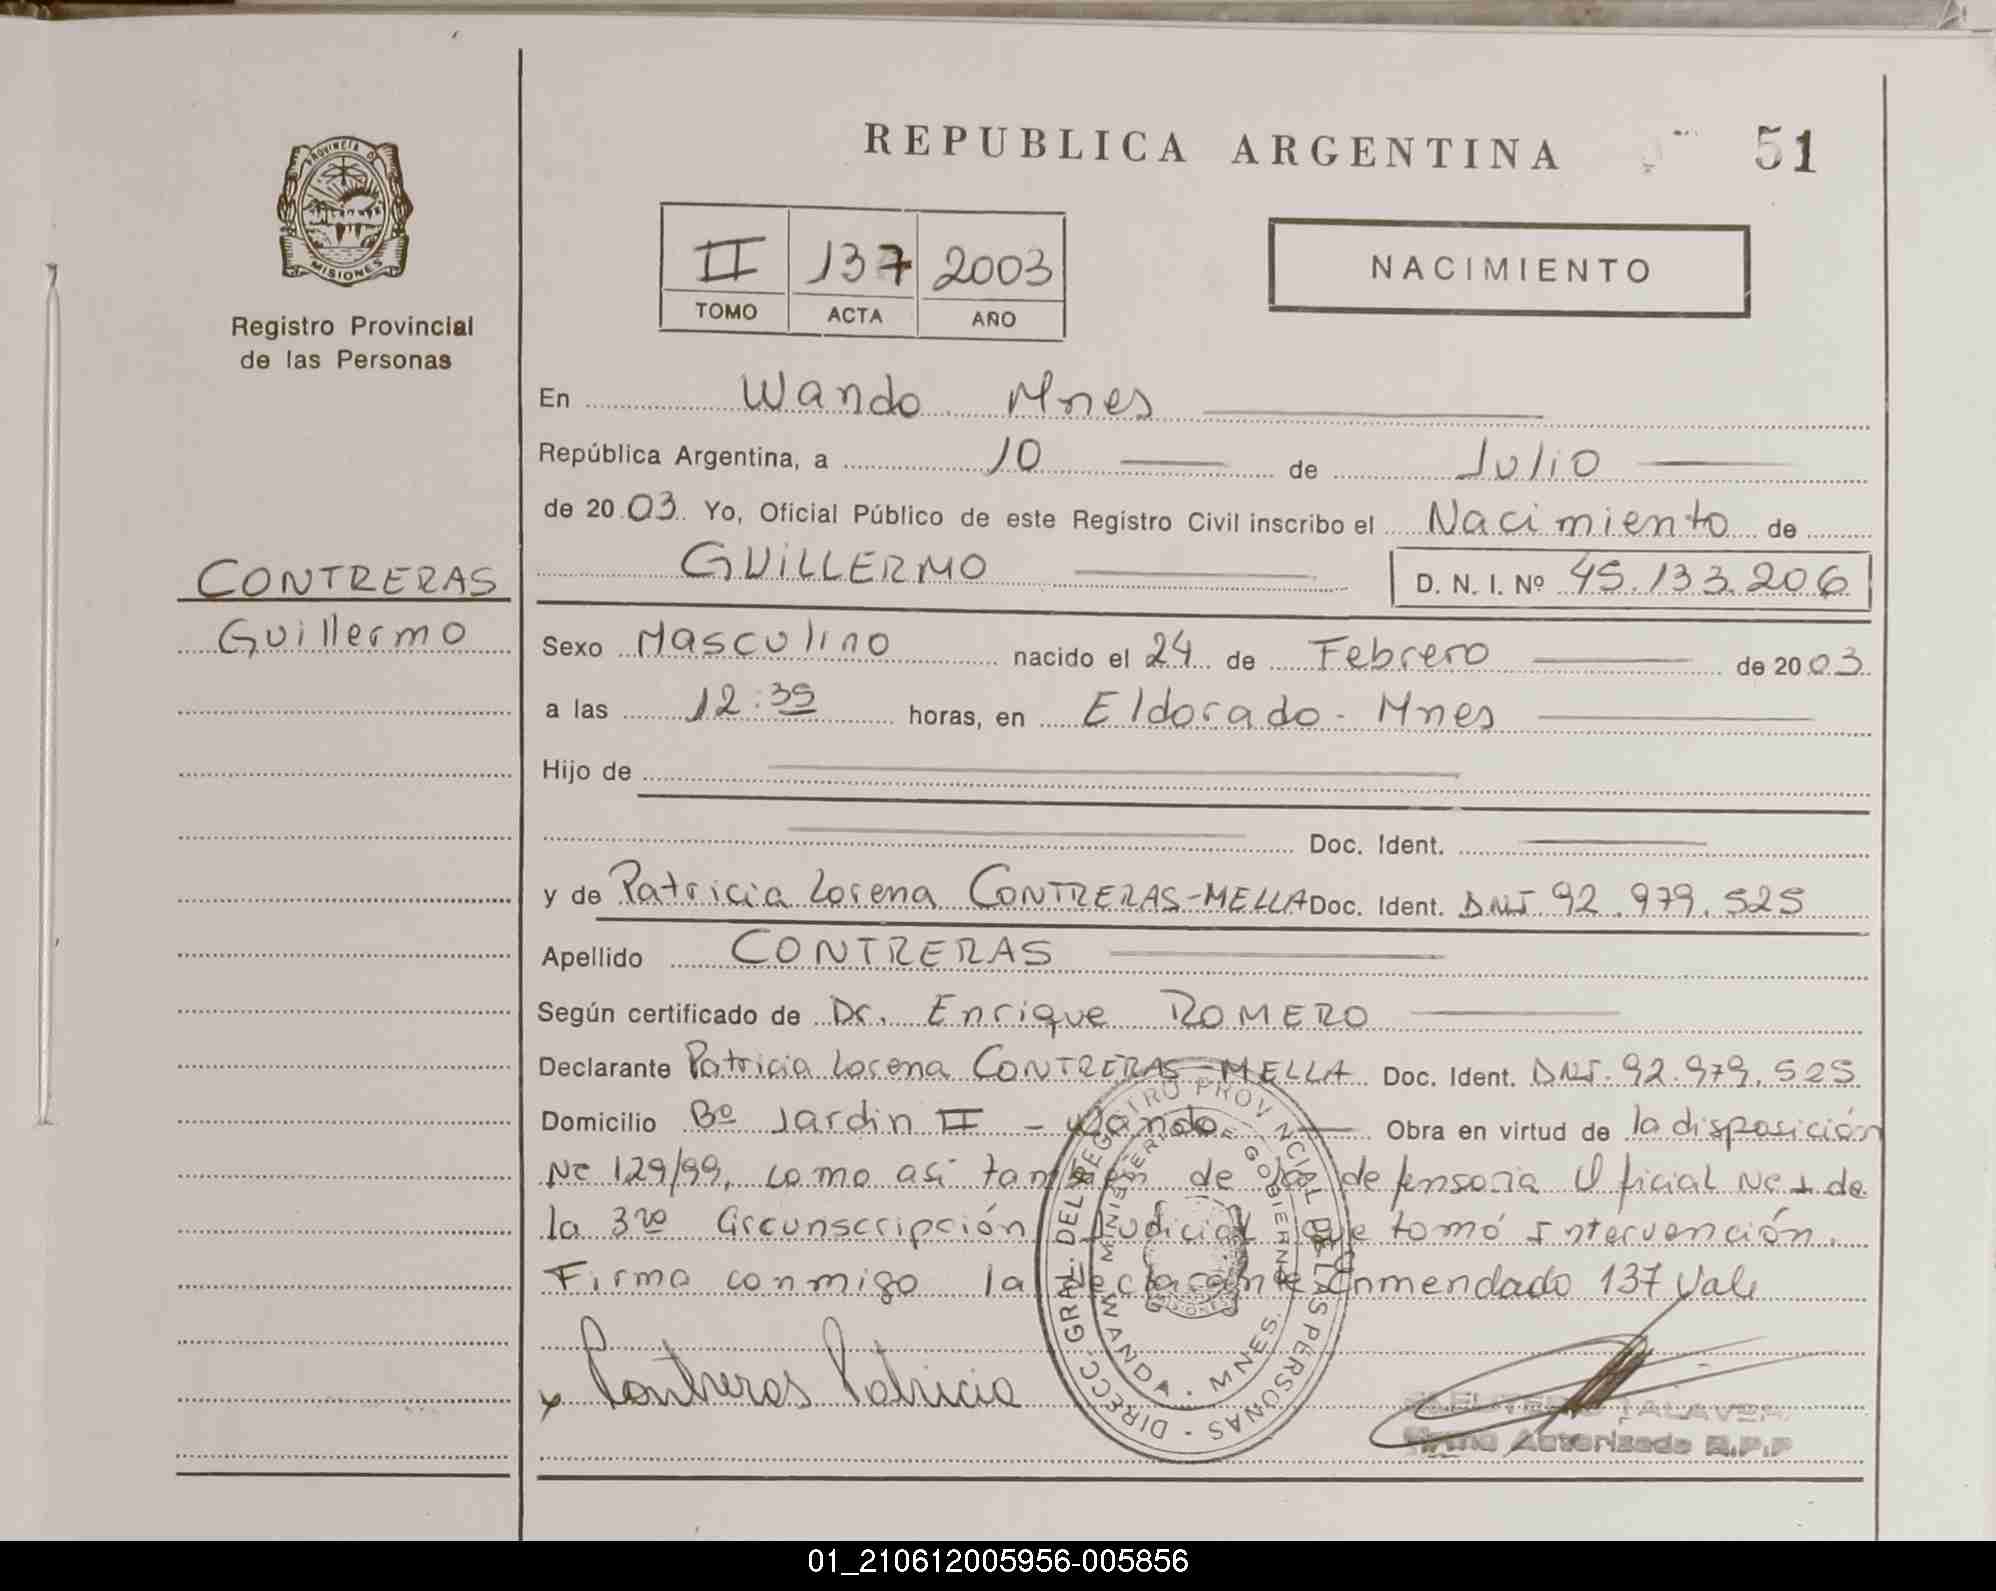 REPUBLICA ARGENTINA 51
PROVINCIA DE
MISIONES
Registro Provincial
de las Personas
II 137 2003
TOMO ACTA AÑO
NACIMIENTO
CONTRERAS
Guillermo
En Wanda Mnes
República Argentina, a 10 de Julio
de 2003. Yo, Oficial Público de este Registro Civil inscribo el Nacimiento de
GUILLERMO D. N. I. Nº 45.133.206
Sexo Masculino nacido el 24 de Febrero de 2003
a las 12:35 horas, en Eldorado - Mnes
Hijo de
Doc. Ident.
y de Patricia Lorena CONTRERAS-MELLA Doc. Ident. DNI 92.979.525
Apellido CONTRERAS
Según certificado de Dr. Enrique ROMERO
Declarante Patricia Lorena CONTRERAS-MELLA Doc. Ident. DNI. 92.979.525
Domicilio Bº Jardin II - Wanda Obra en virtud de la disposición
Nº 129/99, como asi también de la defensoria Oficial Nº 1 de
la 3ra Circunscripción Judicial que tomó Intervención.
Firma conmigo la declarante Enmendado 137 Vale
x Contreras Patricia
DIRECC. GRAL. DEL REGISTRO PROVINCIAL DE LAS PERSONAS
MINISTERIO DE GOBIERNO
WANDA - MNES.
MISIONES
ELEUTERIO TALAVERA
Firma Autorizada R.P.P
01_210612005956-005856